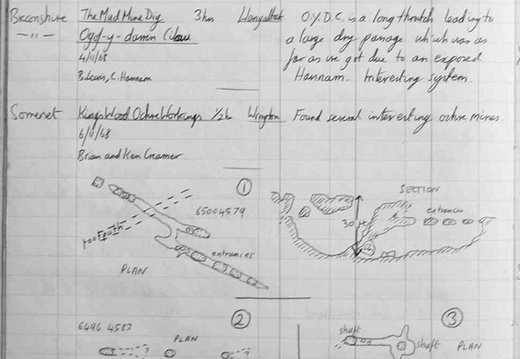 Breconshire The Mud Mine Dig 3hrs Llangattock O.Y.D.C. is a long thrutch leading to
-"- Ogof-y-darren Cilau a large dry passage which was as
4/11/68 far as we got due to an exposed
B. Lewis, C. Hannam Hannam. Interesting system.
Somerset Kings Wood Ochre Workings 1/2hr Wrington Found several interesting ochre mines.
6/11/68
Brian and Ken Creamer
1
SECTION
footpath
65004579
entrances
PLAN
30 ft
entrances
2
6496 4583
PLAN
3
shaft
shaft PLAN